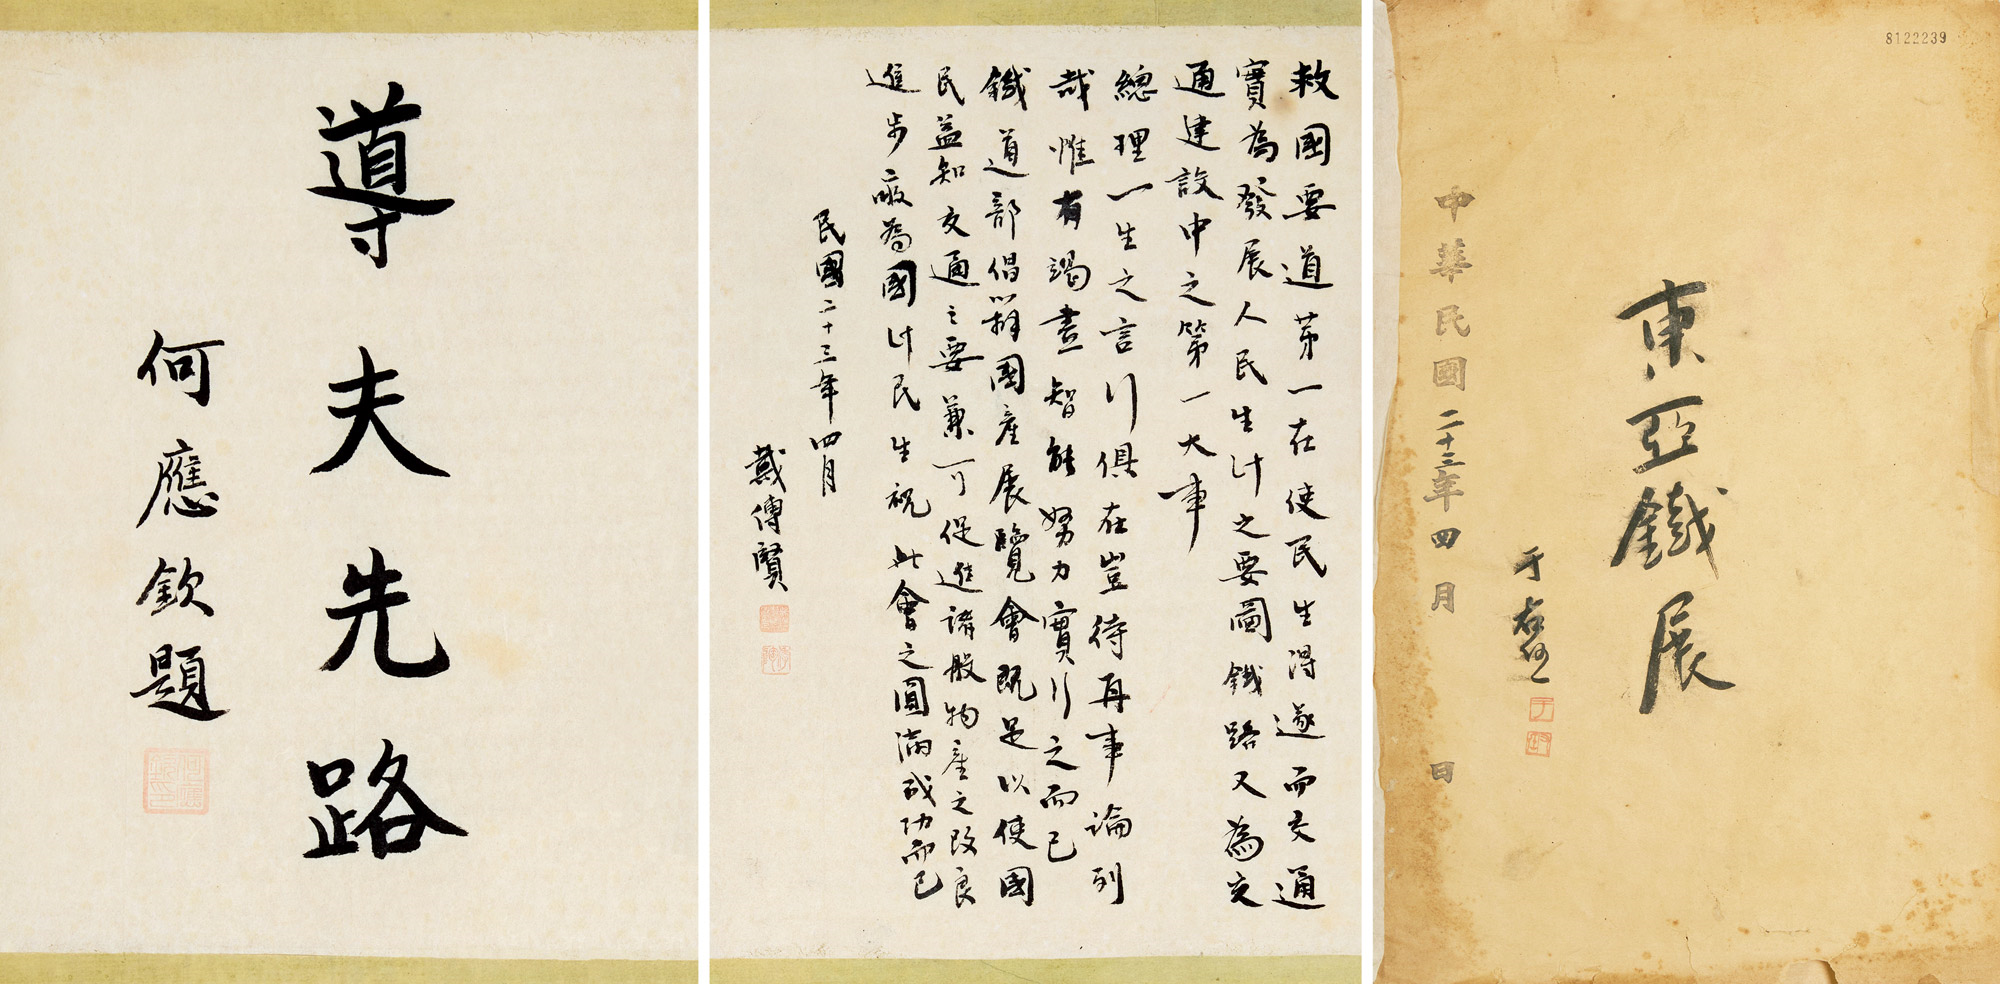 導夫先路
何應欽題
救國要道第一在使民生得遂而交通
實為發展人民生計之要圖鐵路又為交
通建設中之第一大事
總理一生之言行俱在豈待再事論列
哉惟有竭盡智能努力實行之而已
鐵道部倡辦國產展覽會既足以使國
民益知交通之要兼可促進諸般物產之改良
進步敬為國計民生祝此會之圓滿成功而已
民國二十三年四月
戴傳賢
8122239
東亞鐵展
于右任
中華民國二十三年四月 日